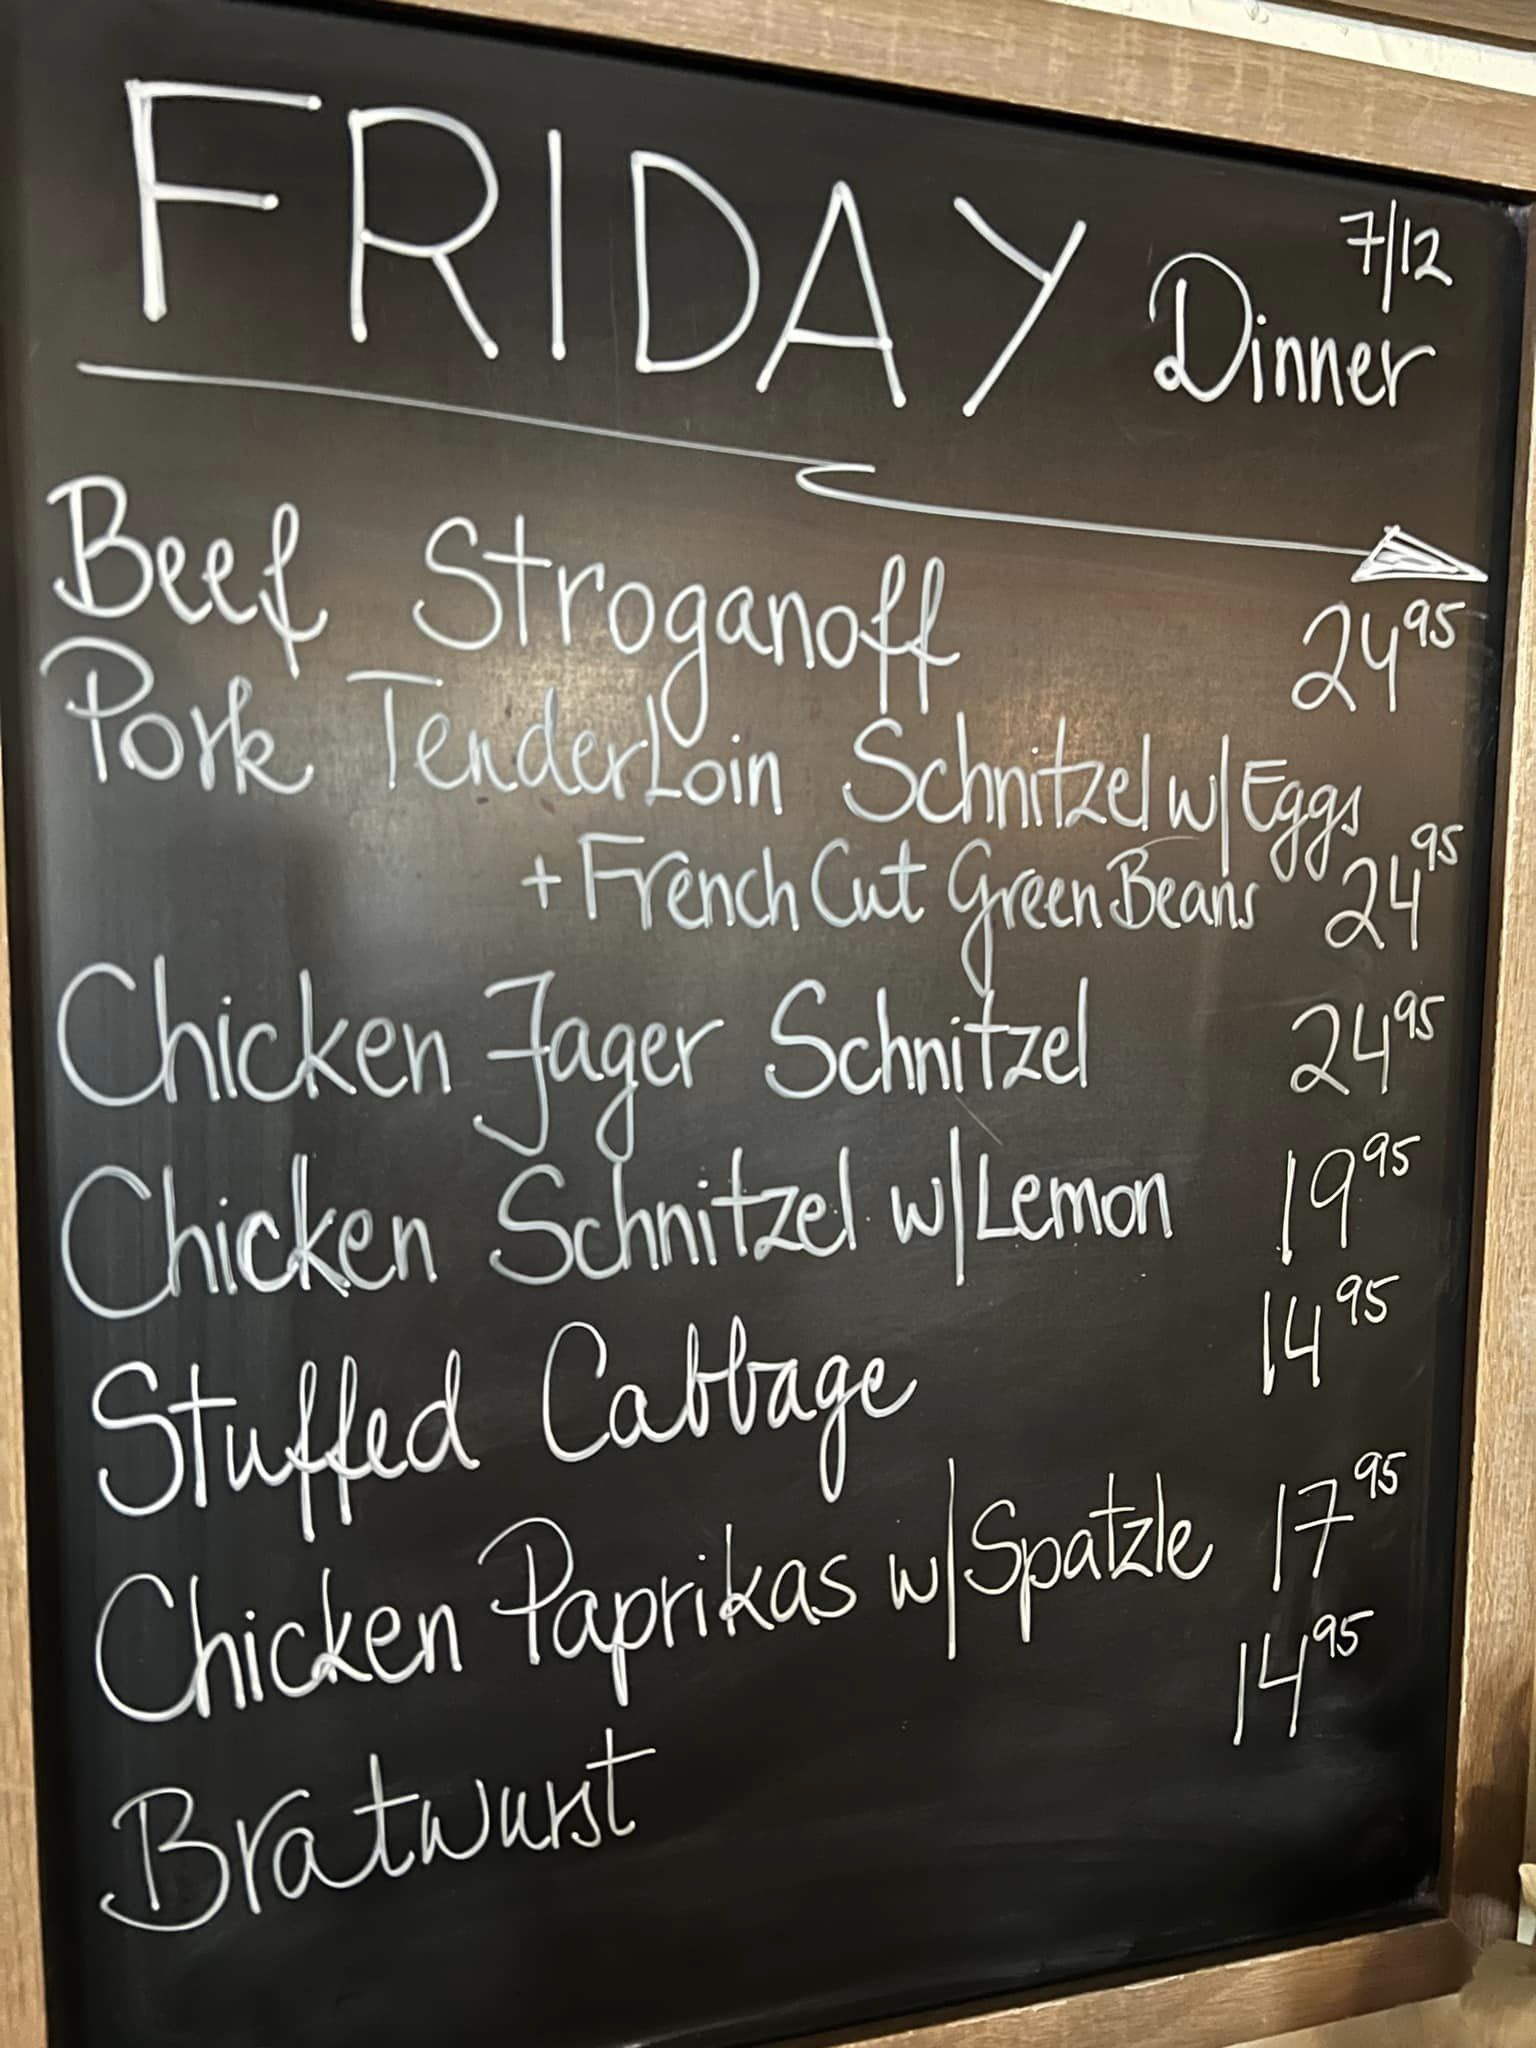 FRIDAY 7/12
Dinner
Beef Stroganoff 24 95
Pork TenderLoin Schnitzel w/Eggs
+ French Cut Green Beans 24 95
Chicken Jager Schnitzel 24 95
Chicken Schnitzel w/Lemon 19 95
Stuffed Cabbage 14 95
Chicken Paprikas w/Spatzle 17 95
Bratwurst 14 95